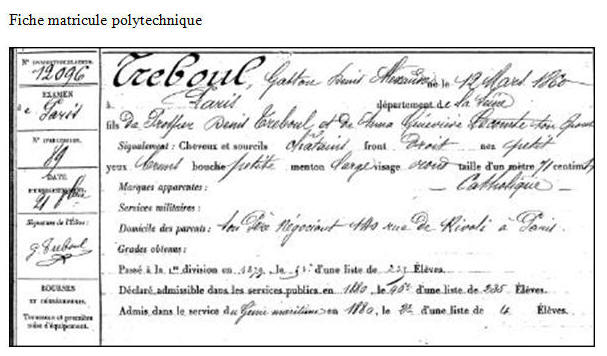 Fiche matricule polytechnique
12096
EXAMEN
à Paris
89
DATE
Signature de l'Élève:
g. Treboul
BOURSES
ET
Trousseau et première
mise d'équipement.
Treboul, Gaston Denis Alexandre né le 12 Mars 1860
à Paris département de la Seine
fils de Denis Treboul et de Anna Geneviève Lecomte son
Signalement: Cheveux et sourcils châtains front droit nez petit
yeux bouche petite menton large visage rond taille d'un mètre 71 centim
Marques apparentes: — Catholique —
Services militaires:
Domicile des parents: son Père Négociant 140 rue de Rivoli à Paris.
Grades obtenus:
Passé à la 1re division en 1879, le d'une liste de Élèves.
Déclaré admissible dans les services publics en 1880 le d'une liste de 235 Élèves.
Admis dans le service du Génie maritime en 1880, le d'une liste de 4 Élèves.